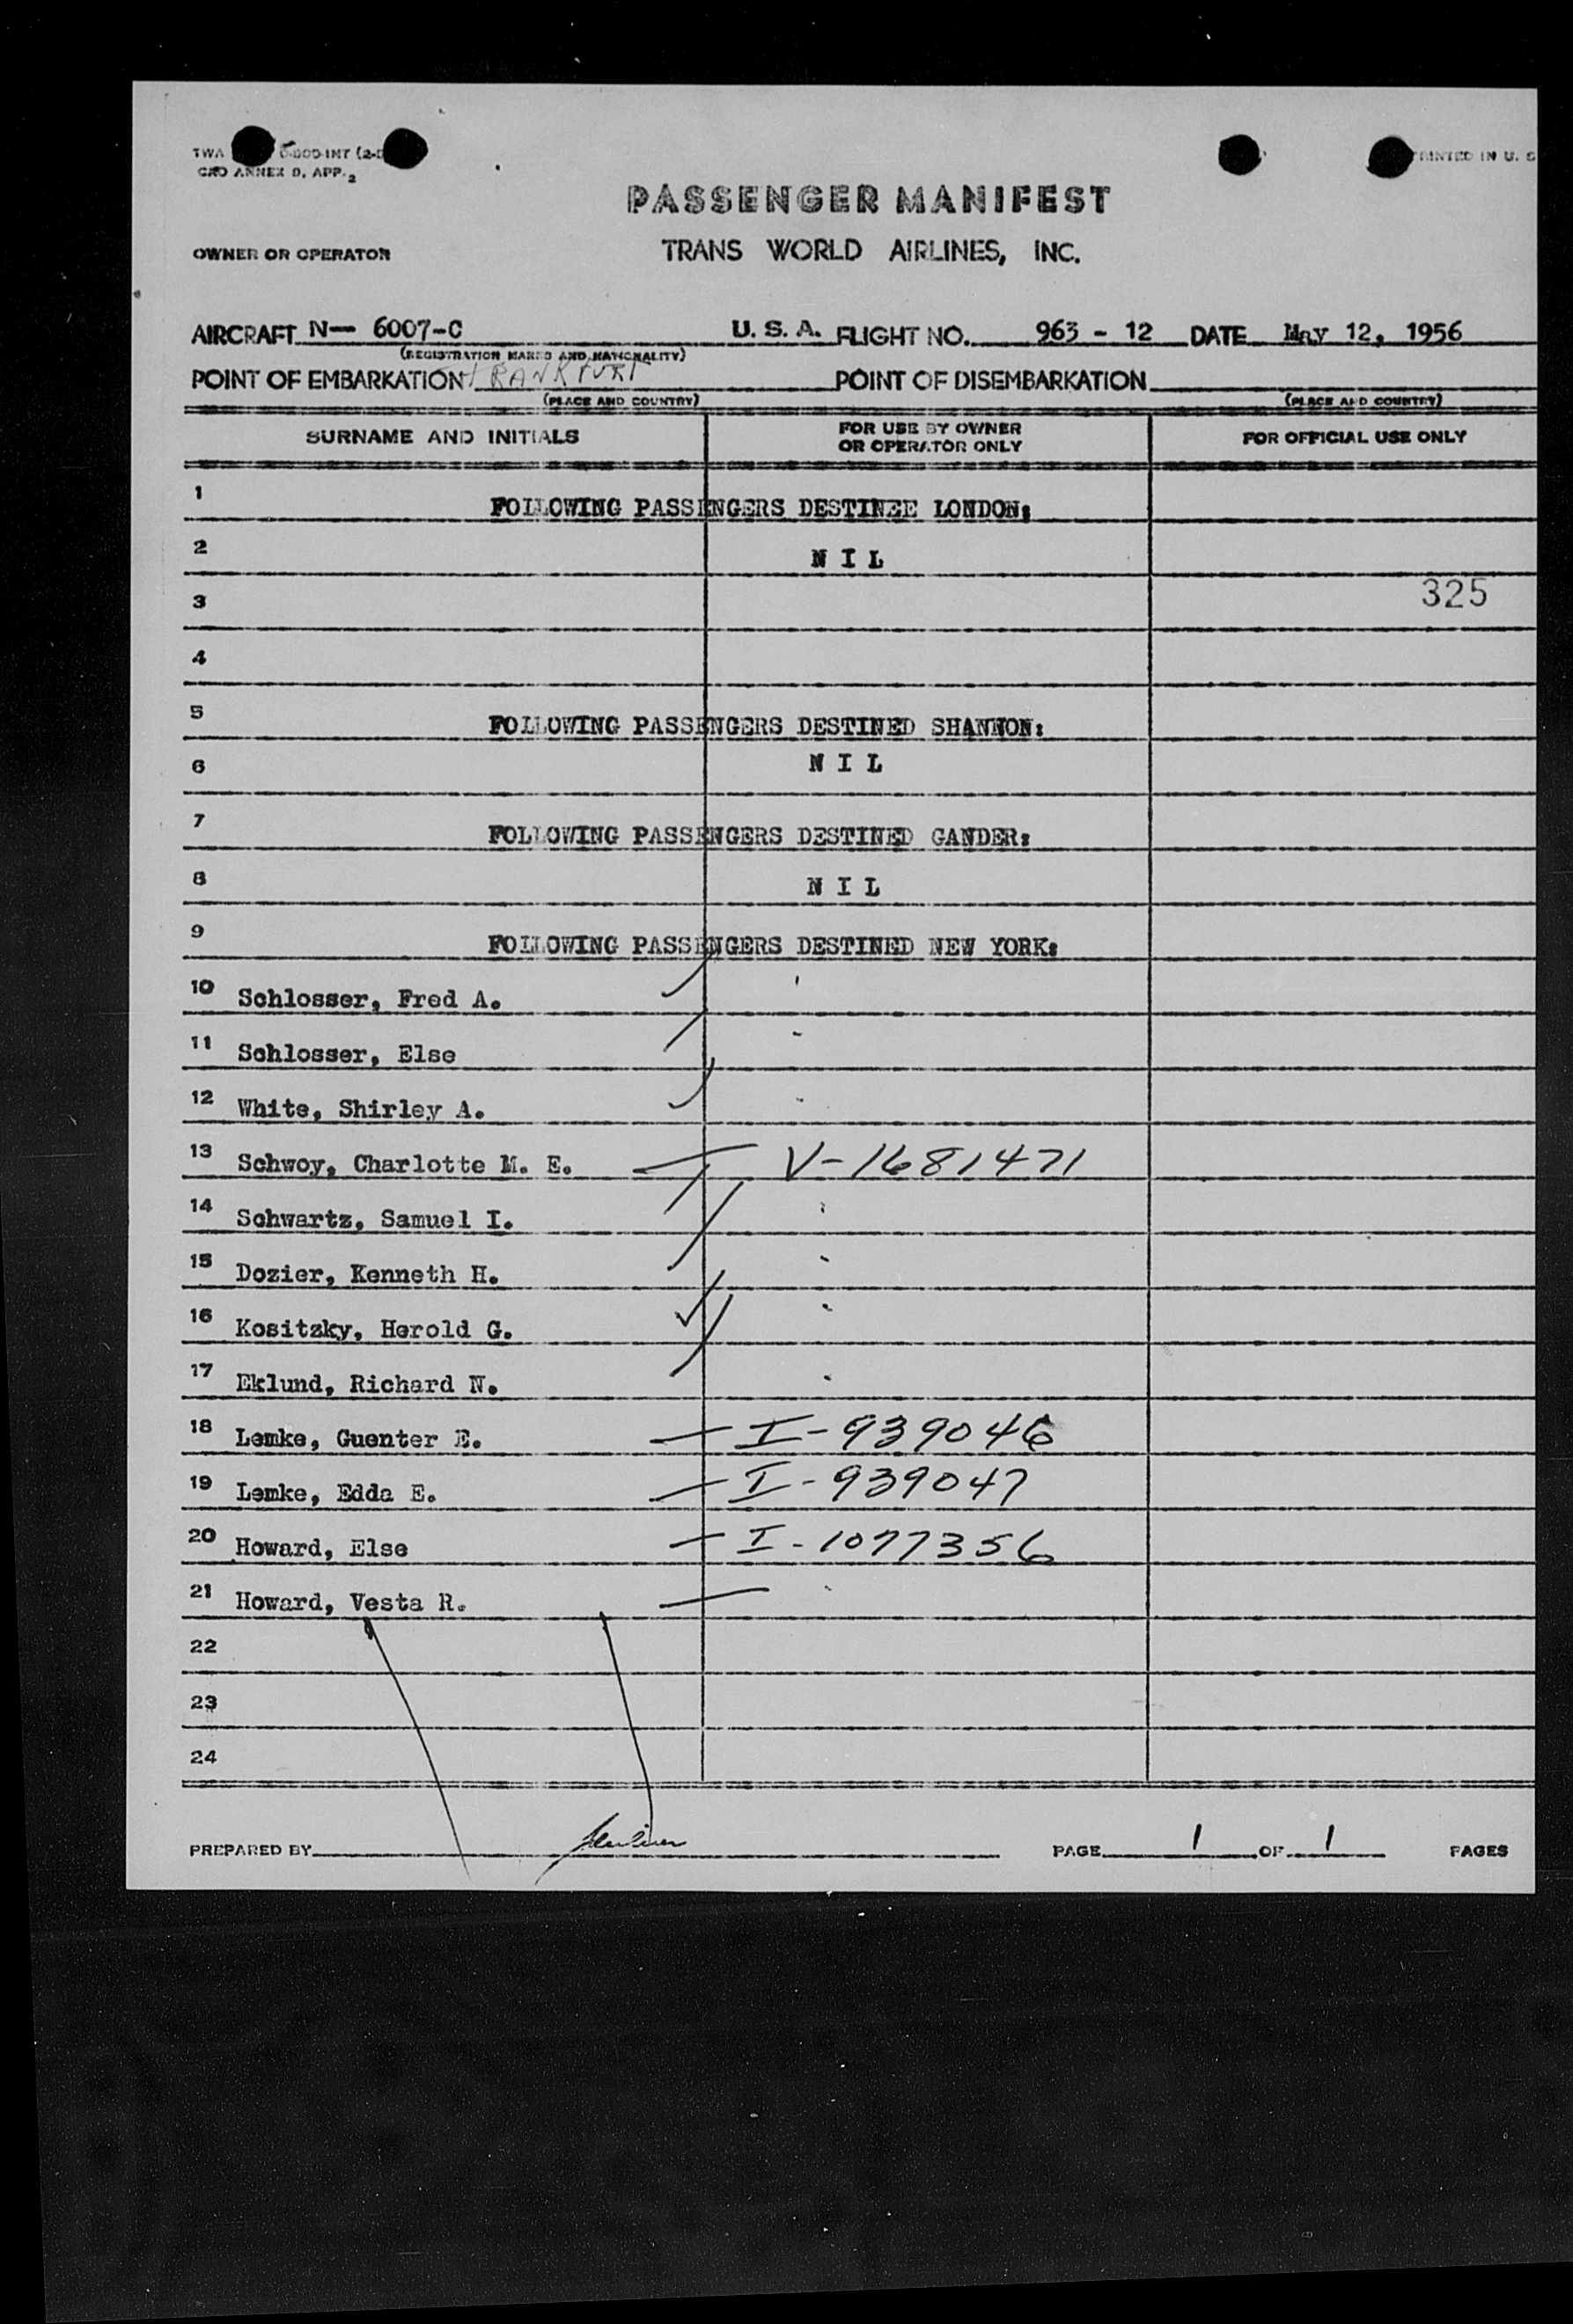 TWA
CAO ANNEX D, APP. 2
PRINTED IN U. S
PASSENGER MANIFEST
OWNER OR OPERATOR TRANS WORLD AIRLINES, INC.
AIRCRAFT N— 6007-C U. S. A. FLIGHT NO. 963 - 12 DATE May 12, 1956
(REGISTRATION MARKS AND NATIONALITY)
POINT OF EMBARKATION FRANKFURT POINT OF DISEMBARKATION
(PLACE AND COUNTRY) (PLACE AND COUNTRY)
SURNAME AND INITIALS FOR USE BY OWNER OR OPERATOR ONLY FOR OFFICIAL USE ONLY
1 FOLLOWING PASSENGERS DESTINEE LONDON:
2 N I L
3 325
4
5 FOLLOWING PASSENGERS DESTINED SHANNON:
6 N I L
7 FOLLOWING PASSENGERS DESTINED GANDER:
8 N I L
9 FOLLOWING PASSENGERS DESTINED NEW YORK:
10 Schlosser, Fred A.
11 Schlosser, Else
12 White, Shirley A.
13 Schwoy, Charlotte M. E. V-1681471
14 Schwartz, Samuel I.
15 Dozier, Kenneth H.
16 Kositzky, Herold G.
17 Eklund, Richard N.
18 Lemke, Guenter E. I-939046
19 Lemke, Edda E. I-939047
20 Howard, Else I-1077356
21 Howard, Vesta R.
22
23
24
PREPARED BY PAGE 1 OF 1 PAGES